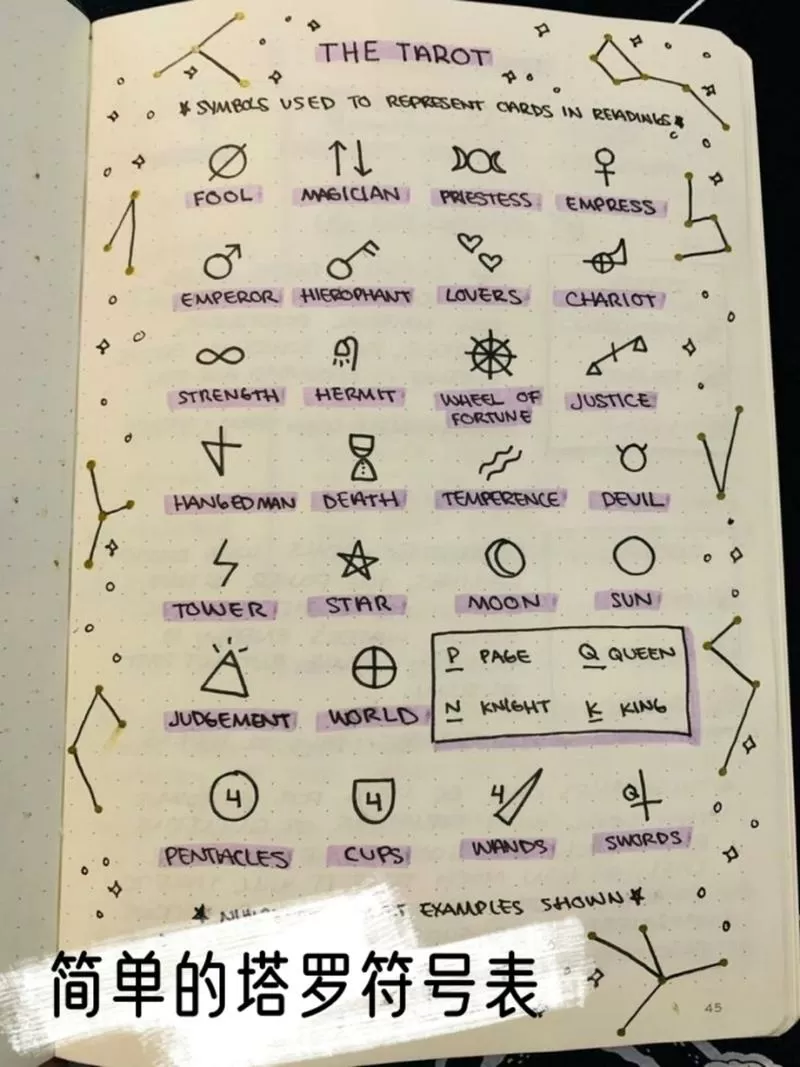 THE TAROT
*SYMBOLS USED TO REPRESENT CARDS IN READINGS*
FOOL MAGICIAN PRIESTESS EMPRESS
EMPEROR HIEROPHANT LOVERS CHARIOT
STRENGTH HERMIT WHEEL OF FORTUNE JUSTICE
HANGED MAN DEATH TEMPERENCE DEVIL
TOWER STAR MOON SUN
JUDGEMENT WORLD
P PAGE Q QUEEN
N KNIGHT K KING
4 4 4 Q
PENTACLES CUPS WANDS SWORDS
EXAMPLES SHOWN*
简单的塔罗符号表
45